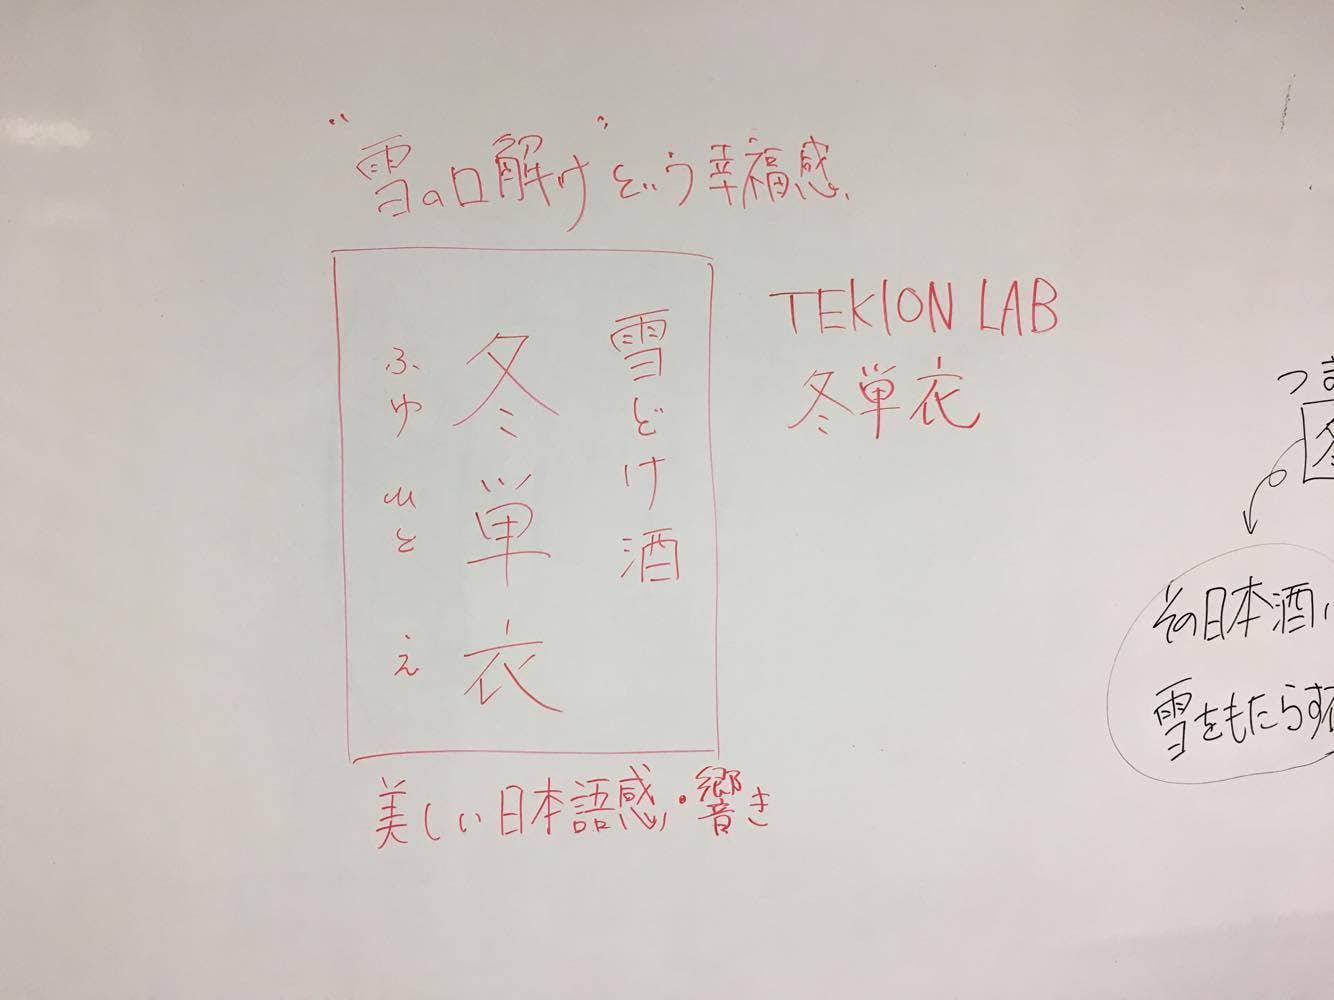 "雪の口解け"という幸福感
雪どけ酒
冬単衣
ふゆ ひと え
美しい日本語感・響き
TEKION LAB
冬単衣
その日本酒
雪をもたらす